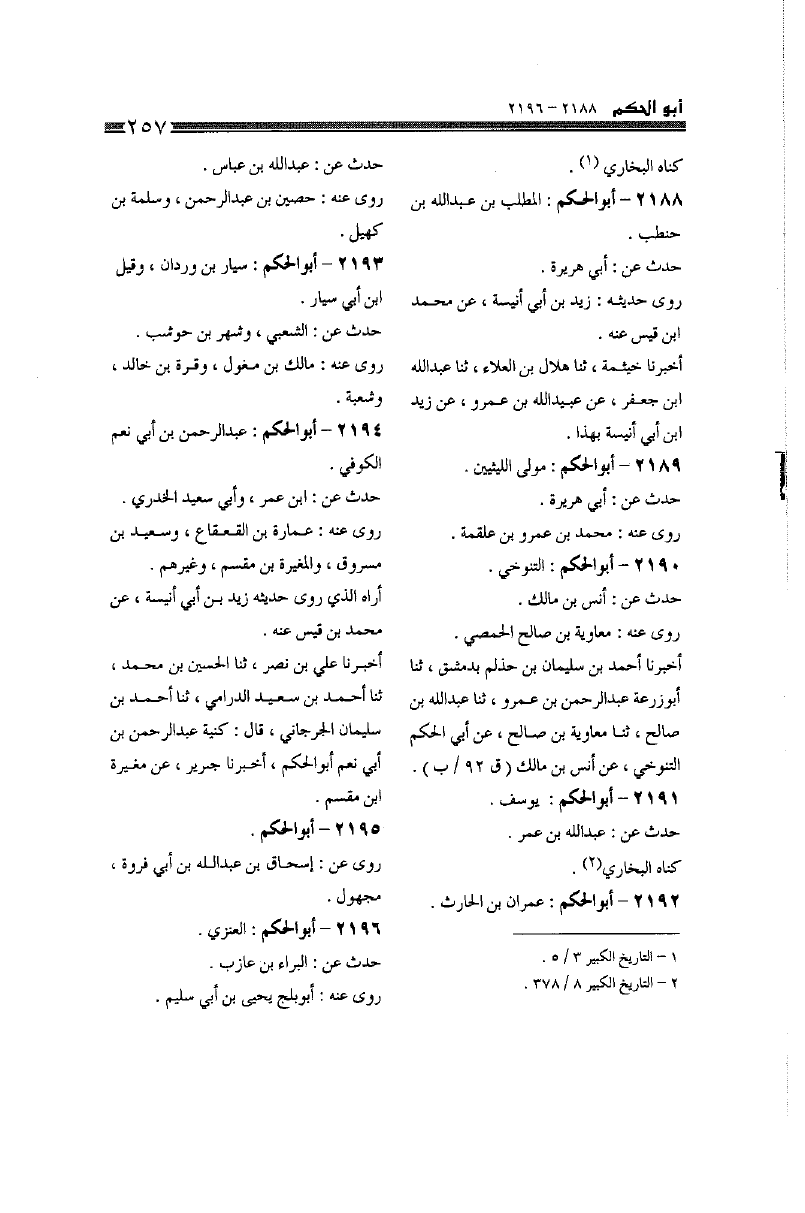 أبو الحكم ٢١٨٨ - ٢١٩٦
٢٥٧
كناه البخاري (١) .
٢١٨٨ - أبوالحكم : المطلب بن عبدالله بن
حنطب .
حدث عن : أبي هريرة .
روى حديثه : زيد بن أبي أنيسة ، عن محمد
ابن قيس عنه .
أخبرنا خيثمة ، ثنا هلال بن العلاء ، ثنا عبدالله
ابن جعفر ، عن عبيدالله بن عمرو ، عن زيد
ابن أبي أنيسة بهذا .
٢١٨٩ - أبوالحكم : مولى الليثيين .
حدث عن : أبي هريرة .
روى عنه : محمد بن عمرو بن علقمة .
٢١٩٠ - أبوالحكم : التنوخي .
حدث عن : أنس بن مالك .
روى عنه : معاوية بن صالح الحمصي .
أخبرنا أحمد بن سليمان بن حذلم بدمشق ، ثنا
أبوزرعة عبدالرحمن بن عمرو ، ثنا عبدالله بن
صالح ، ثنا معاوية بن صالح ، عن أبي الحكم
التنوخي ، عن أنس بن مالك ( ق ٩٢ / ب ) .
٢١٩١ - أبوالحكم : يوسف .
حدث عن : عبدالله بن عمر .
كناه البخاري(٢) .
٢١٩٢ - أبوالحكم : عمران بن الحارث .
١ - التاريخ الكبير ٣ / ٥ .
٢ - التاريخ الكبير ٨ / ٣٧٨ .
حدث عن : عبدالله بن عباس .
روى عنه : حصين بن عبدالرحمن ، وسلمة بن
كهيل .
٢١٩٣ - أبوالحكم : سيار بن وردان ، وقيل
ابن أبي سيار .
حدث عن : الشعبي ، وشهر بن حوشب .
روى عنه : مالك بن مغول ، وقرة بن خالد ،
وشعبة .
٢١٩٤ - أبوالحكم : عبدالرحمن بن أبي نعم
الكوفي .
حدث عن : ابن عمر ، وأبي سعيد الخدري .
روى عنه : عمارة بن القعقاع ، وسعيد بن
مسروق ، والمغيرة بن مقسم ، وغيرهم .
أراه الذي روى حديثه زيد بن أبي أنيسة ، عن
محمد بن قيس عنه .
أخبرنا علي بن نصر ، ثنا الحسين بن محمد ،
ثنا أحمد بن سعيد الدرامي ، ثنا أحمد بن
سليمان الجرجاني ، قال : كنية عبدالرحمن بن
أبي نعم أبوالحكم ، أخبرنا جرير ، عن مغيرة
ابن مقسم .
٢١٩٥ - أبوالحكم .
روى عن : إسحاق بن عبدالله بن أبي فروة ،
مجهول .
٢١٩٦ - أبوالحكم : العنزي .
حدث عن : البراء بن عازب .
روى عنه : أبوبلج يحيى بن أبي سليم .